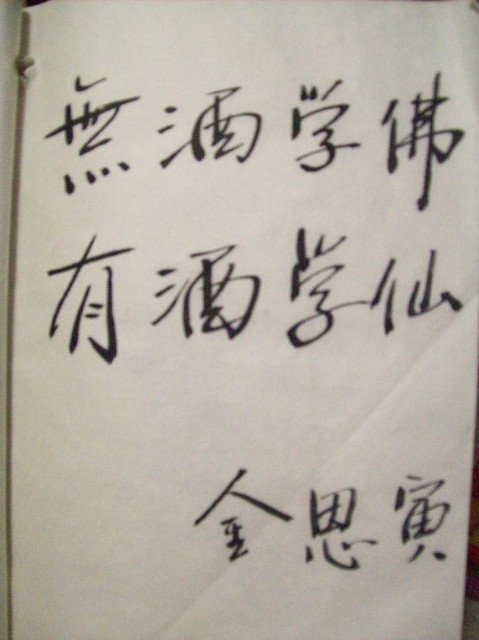 無酒学佛
有酒学仙
金思寅